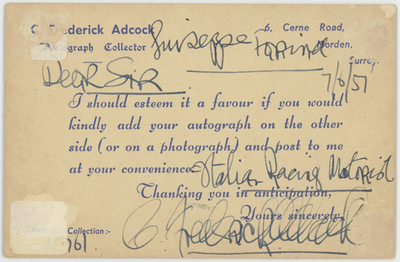 C. Frederick Adcock 6, Cerne Road,
Autograph Collector Giuseppe Farina Morden,
Surrey.
Dear Sir 7/6/51
I should esteem it a favour if you would
kindly add your autograph on the other
side (or on a photograph) and post to me
at your convenience. Italian Racing Motorist
Thanking you in anticipation,
Yours sincerely,
C Frederick Adcock
Collection :-